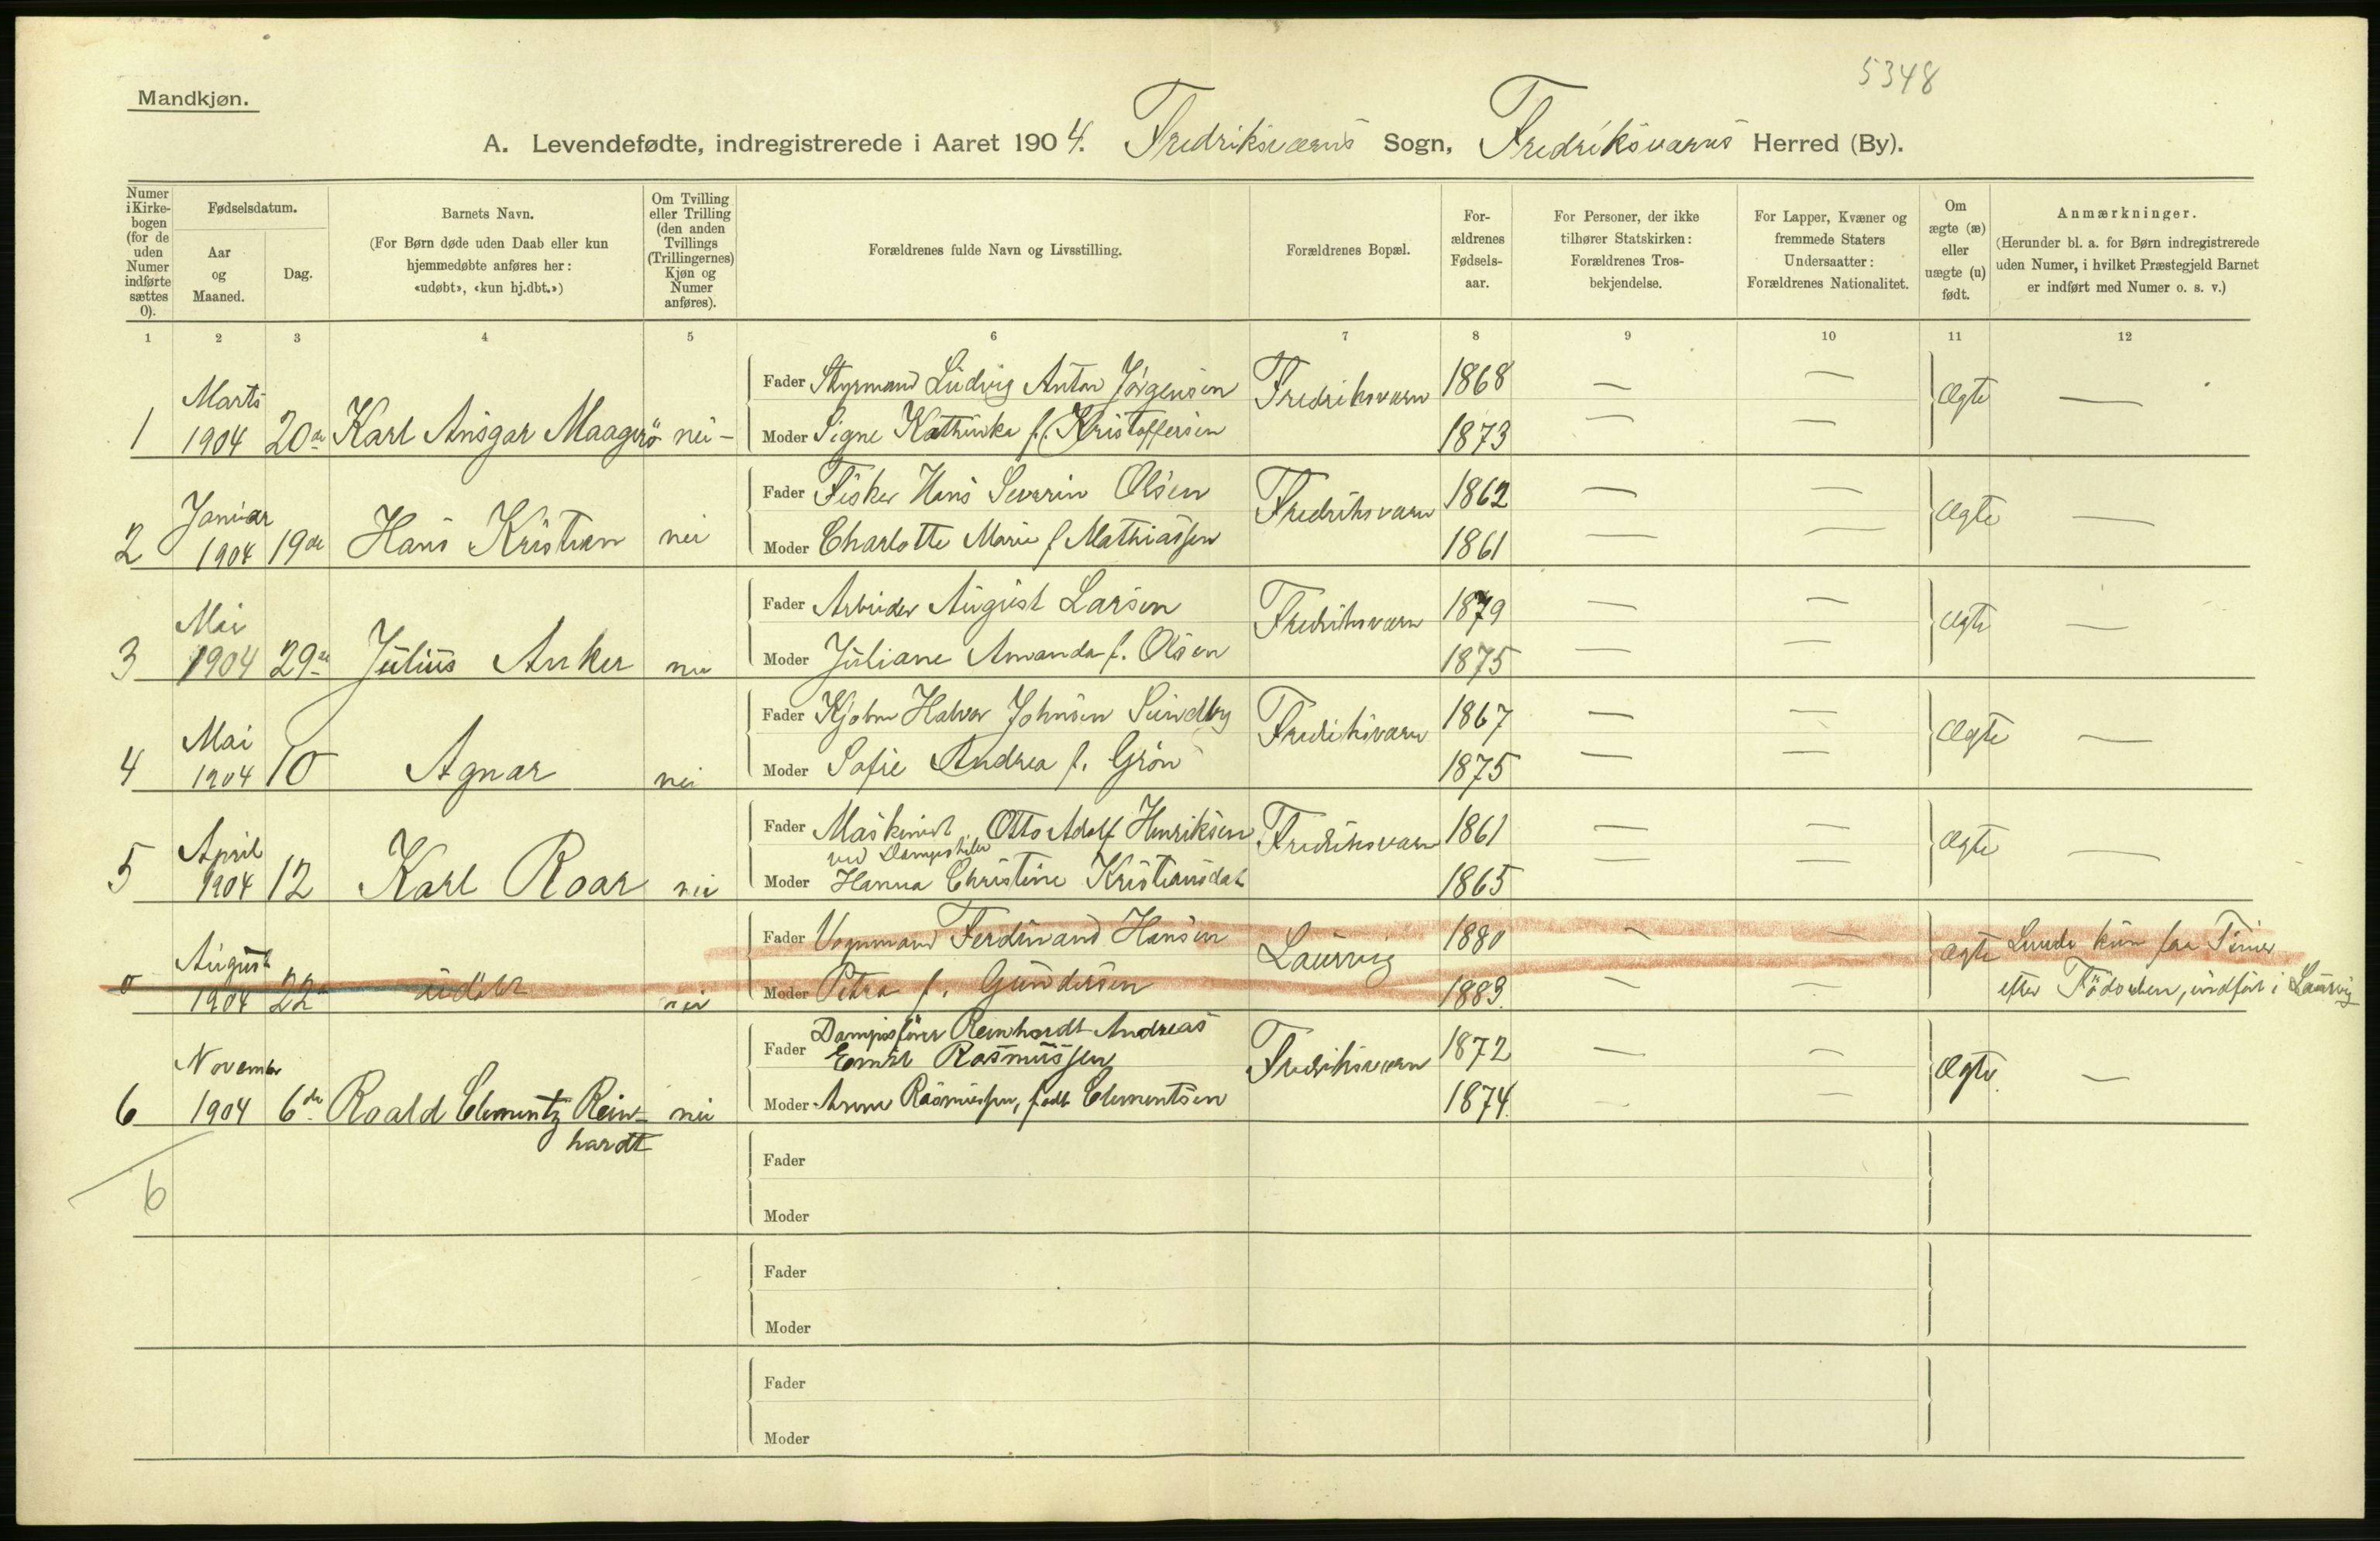 5348
Mandkjøn.
A. Levendefødte, indregistrerede i Aaret 1904. Fredriksværns Sogn, Fredriksværns Herred (By).
Numer i Kirkebogen (for de uden Numer indførte sættes 0).
Fødselsdatum.
Aar og Maaned.
Dag.
Barnets Navn.
(For Børn døde uden Daab eller kun hjemmedøbte anføres her: «udøbt», «kun hj.dbt.»)
Om Tvilling eller Trilling (den anden Tvillings (Trillingernes) Kjøn og Numer anføres).
Forældrenes fulde Navn og Livsstilling.
Forældrenes Bopæl.
Forældrenes Fødselsaar.
For Personer, der ikke tilhører Statskirken: Forældrenes Trosbekjendelse.
For Lapper, Kvæner og fremmede Staters Undersaatter: Forældrenes Nationalitet.
Om ægte (æ) eller uægte (u) født.
Anmærkninger.
(Herunder bl. a. for Børn indregistrerede uden Numer, i hvilket Præstegjeld Barnet er indført med Numer o. s. v.)
1 2 3 4 5 6 7 8 9 10 11 12
Fader Styrmand Ludvig Anton Jørgensen Fredriksværn 1868 — —
1 Marts 1904 20de Karl Ansgar Maagerø nei — Moder Signe Kathinka f. Kristoffersen 1873 — — Ægte —
Fader Fisker Hans Severin Olsen Fredriksværn 1862 — —
2 Januar 1904 19de Hans Kristian nei Moder Charlotte Marie f. Mathiassen 1861 — — Ægte —
Fader Arbeider August Larsen Fredriksværn 1879 — —
3 Mai 1904 29de Julius Anker nei Moder Juliane Amanda f. Olsen 1875 — — Ægte —
Fader Halvor Johnsen Sundby Fredriksværn 1867 — —
4 Mai 1904 10 Agnar nei Moder Sofie Andrea f. Grøn 1875 — — Ægte —
Fader Maskinist Otto Adolf Henriksen Fredriksværn 1861 — —
ved
5 April 1904 12 Karl Roar nei Moder Hanna Christine Kristiansdat 1865 — — Ægte —
Fader Vognmand Ferdinand Hansen Laurvig 1880 — — Levede kun faa Timer
0 August 1904 22 udøbt nei Moder Petra f. Gundersen 1883. — — Ægte efter Fødselen, indført i Laurvig
Fader Dampsfører Reinhardt Andreas
Emil Rasmussen Fredriksværn 1872 — —
6 November 1904 6de Roald Clementz Rein- nei Moder Anna Rasmussen, født Clementsen 1874. — — Ægte. —
hardt
Fader
6
Moder
Fader
Moder
Fader
Moder